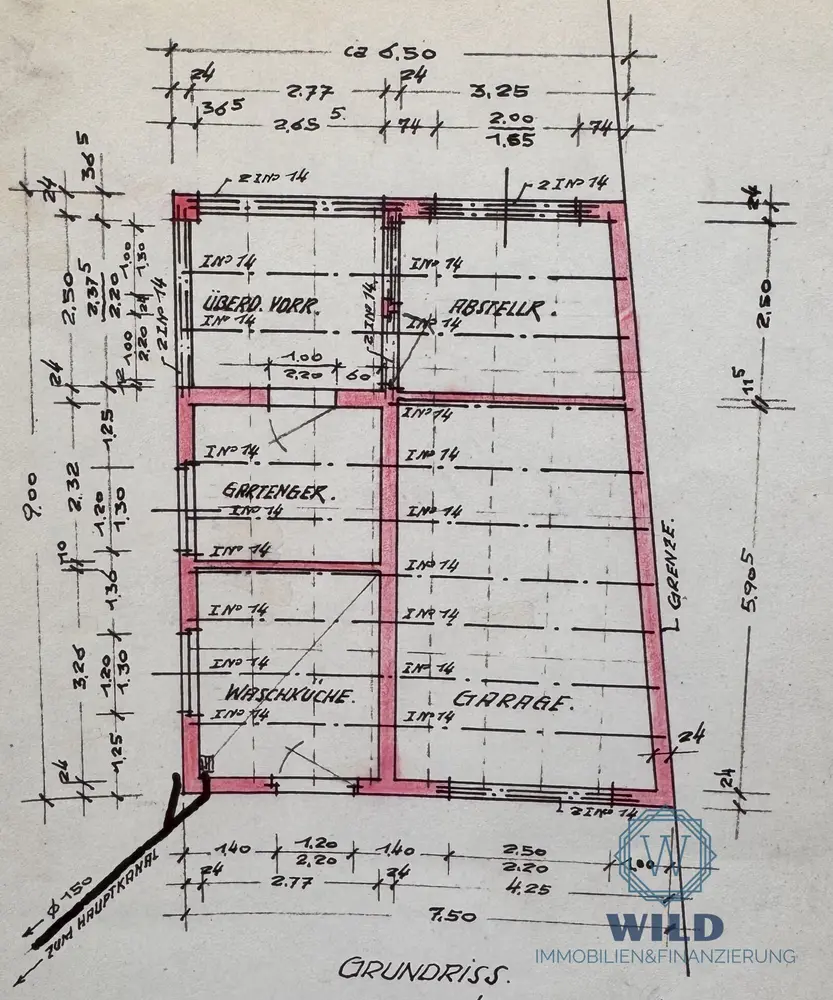 ca 6.50
24 2.77 24 3.25
36⁵ 2.65⁵ 74 2.00 74
1.85
2 IN° 14
2 IN° 14
24
36⁵
24
IN° 14
IN° 14
2.50
2.37⁵
2.20
1.00
1.30
24
1.00
2.20
2 IN° 14
ÜBERD. VORR.
ABSTELLR.
IN° 14
IN° 14
2 IN° 14
2.50
1.00
2.20
60
24
11⁵
IN° 14
1.25
IN° 14
IN° 14
9.00
2.32
1.20
1.30
GARTENGER.
IN° 14
IN° 14
10
IN° 14
IN° 14
1.30
GRENZE.
5.90⁵
IN° 14
IN° 14
3.26
1.20
1.30
IN° 14
IN° 14
WASCHKÜCHE.
GARAGE.
IN° 14
IN° 14
1.25
24
24
24
2 IN° 14
1.40 1.20 1.40 2.50 1.00
2.20 2.20
24 2.77 24 4.25
7.50
Ø 150
ZUM HAUPTKANAL
W
WILD
IMMOBILIEN&FINANZIERUNG
GRUNDRISS.